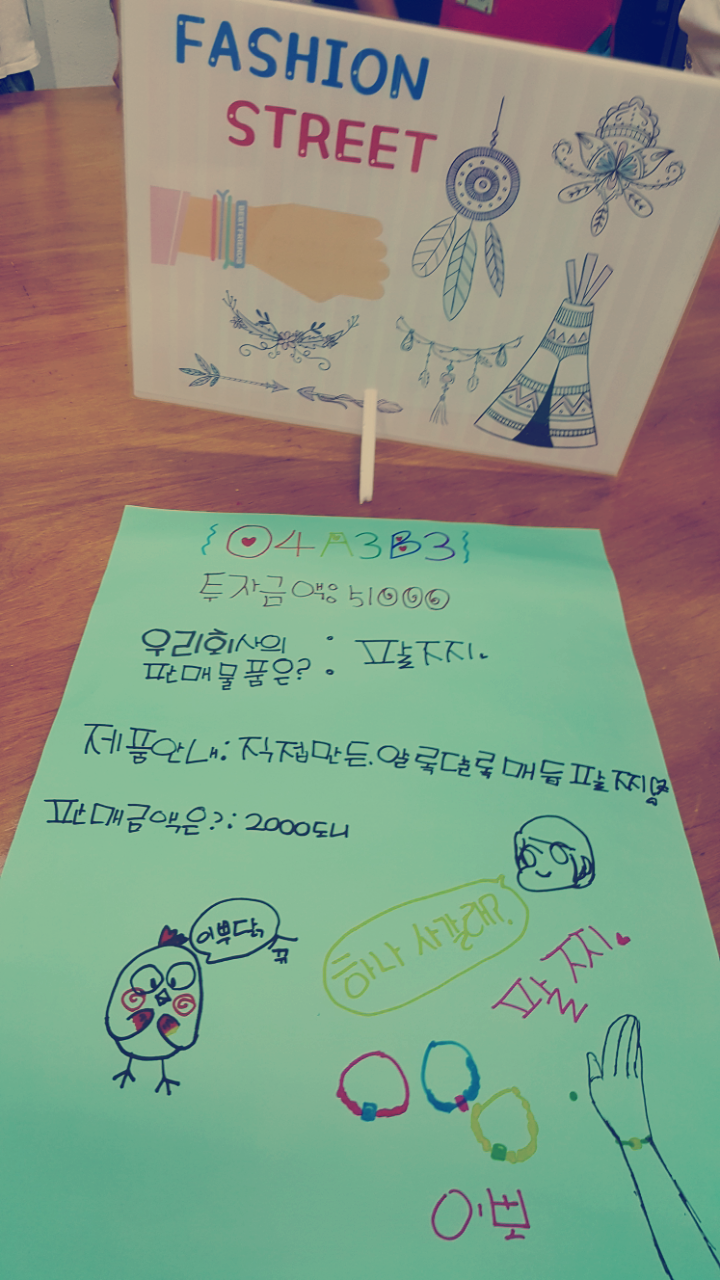 FASHION
STREET
BEST FRIENDS
{04A3B3}
투자금액은 51000
우리회사의
판매물품은? : 팔찌.
제품안내: 직접만든. 알록달록 매듭 팔찌
판매금액은?: 2000도니
이뿌닭
하나 사갈래?
팔찌.
이뽀